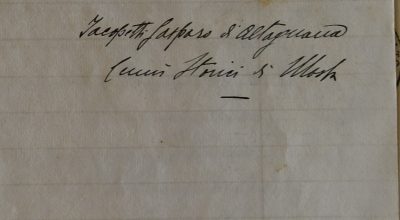 Jacopetti Gasparo di Altagnana
Cenni Storici di Massa